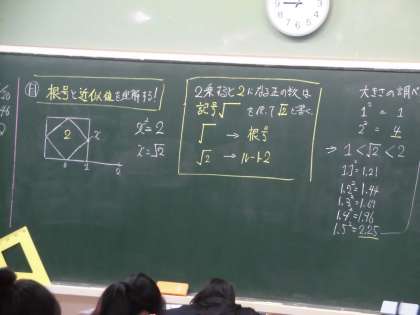 目 根号と近似値を理解する!
2
x
0 1 2
x²=2
x=√2
2乗すると2になる正の数は
記号√ を使って√2と書く。
√ → 根号
√2 → ルート2
大きさの調べ
1² = 1
2² = 4
⇒ 1<√2<2
1.1²=1.21
1.2²=1.44
1.3²=1.69
1.4²=1.96
1.5²=2.25